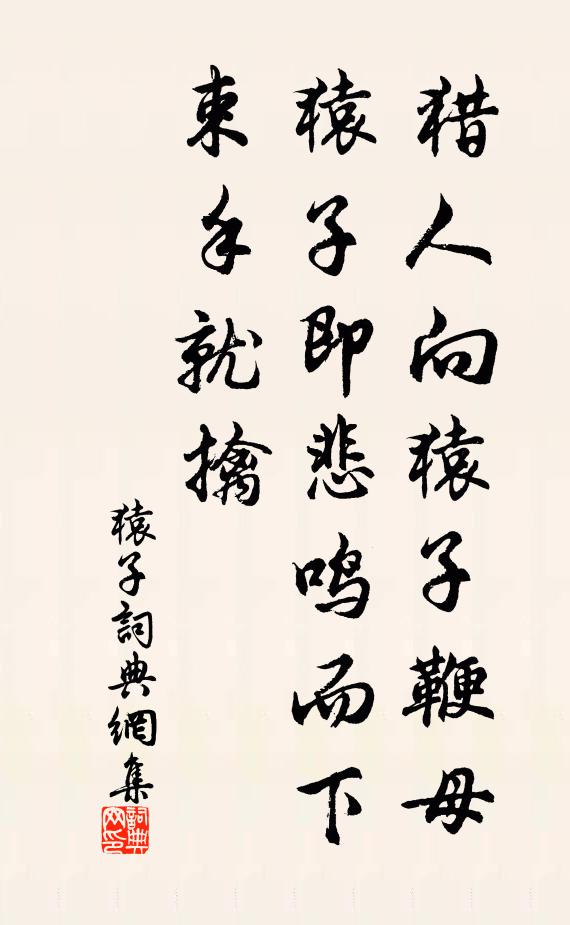 猎人向猿子鞭母
猿子即悲鸣而下
束手就擒
猿子詞典網集
詞典
网印